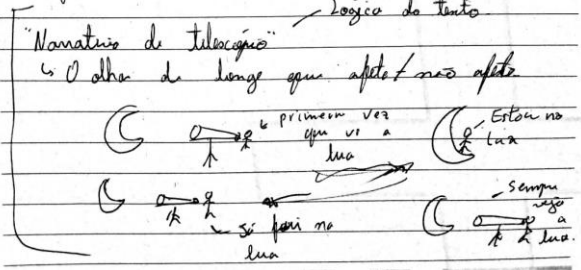 Lógica do texto
"Narrativa de telescópio"
↳ O olhar de longe que afeta / não afeta
primeira vez que vi a lua
Estou na lua
só fui na lua
Sempre vejo a lua.